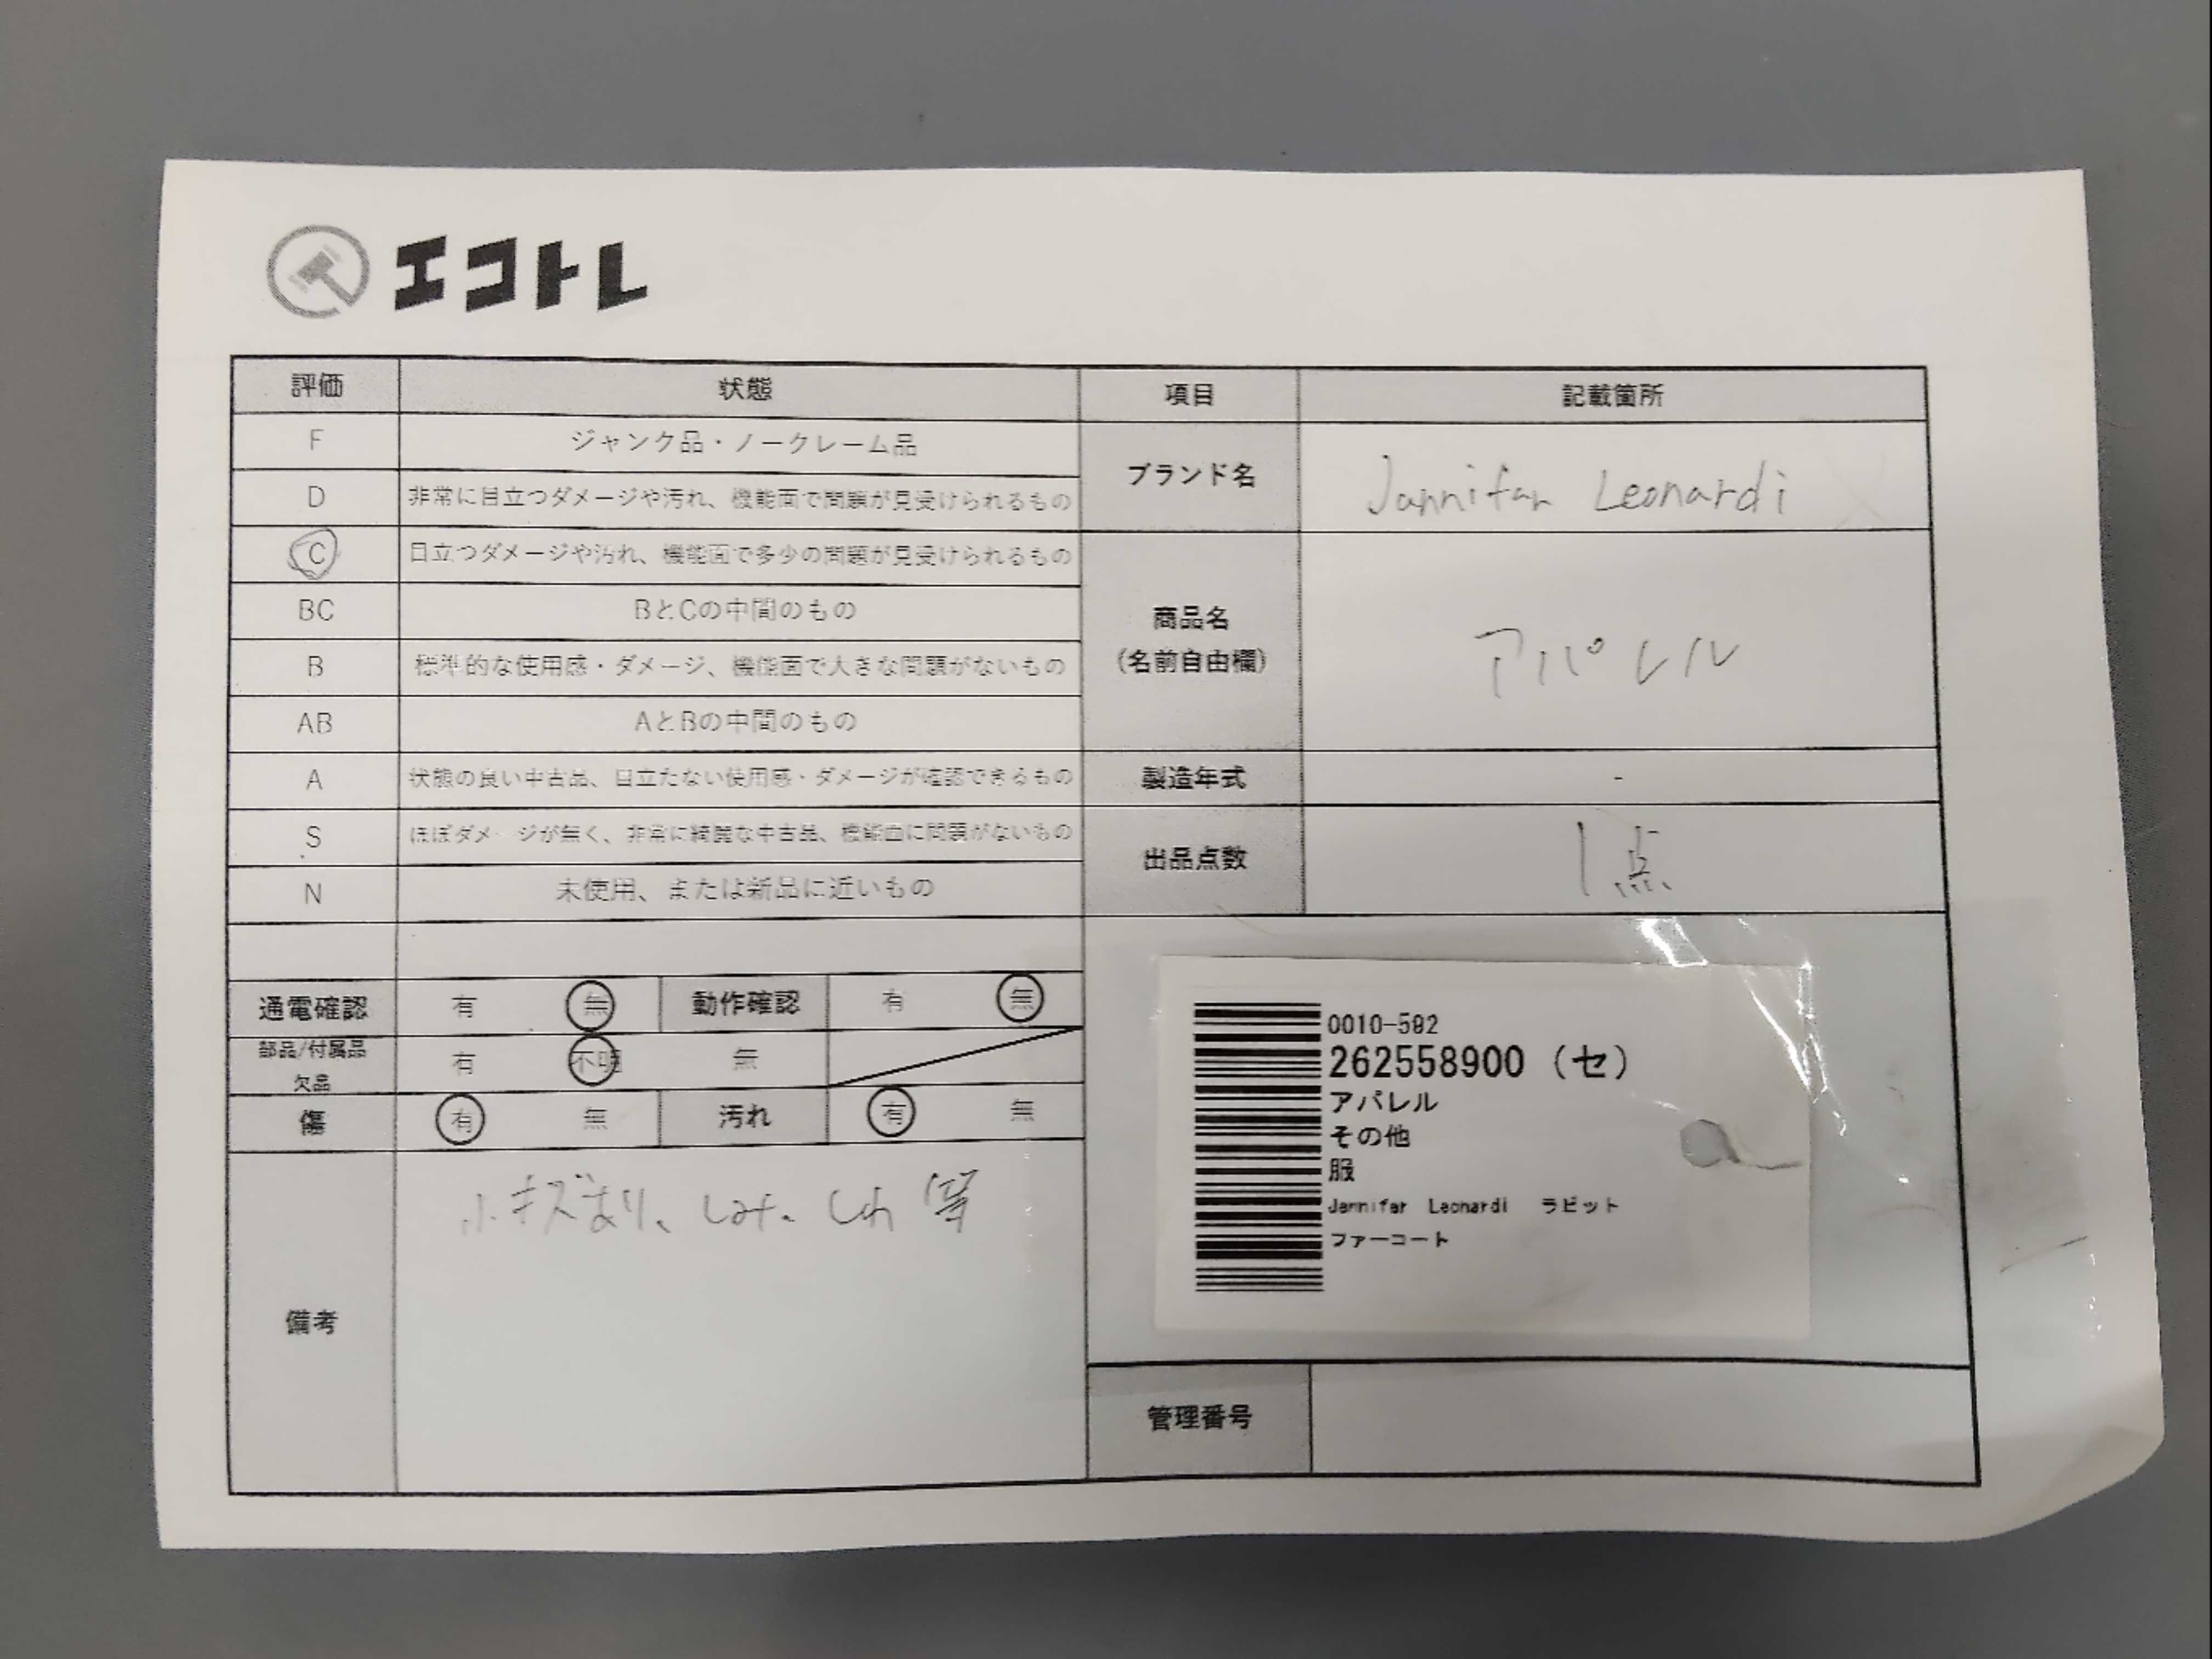 エコトレ
評価 状態 項目 記載箇所
F ジャンク品・ノークレーム品
D 非常に目立つダメージや汚れ、機能面で問題が見受けられるもの
ブランド名 Jannifar Leonardi
C 目立つダメージや汚れ、機能面で多少の問題が見受けられるもの
BC BとCの中間のもの
商品名
(名前自由欄) アパレル
B 標準的な使用感・ダメージ、機能面で大きな問題がないもの
AB AとBの中間のもの
A 状態の良い中古品、目立たない使用感・ダメージが確認できるもの
製造年式 -
S ほぼダメージが無く、非常に綺麗な中古品、機能面に問題がないもの
出品点数 1点
N 未使用、または新品に近いもの
通電確認 有 無 動作確認 有 無
部品/付属品
欠品 有 不明 無
傷 有 無 汚れ 有 無
備考 小キズあり、しみ、しわ 等
0010-592
262558900 (セ)
アパレル
その他
服
Jannifar Leonardi ラビット
ファーコート
管理番号